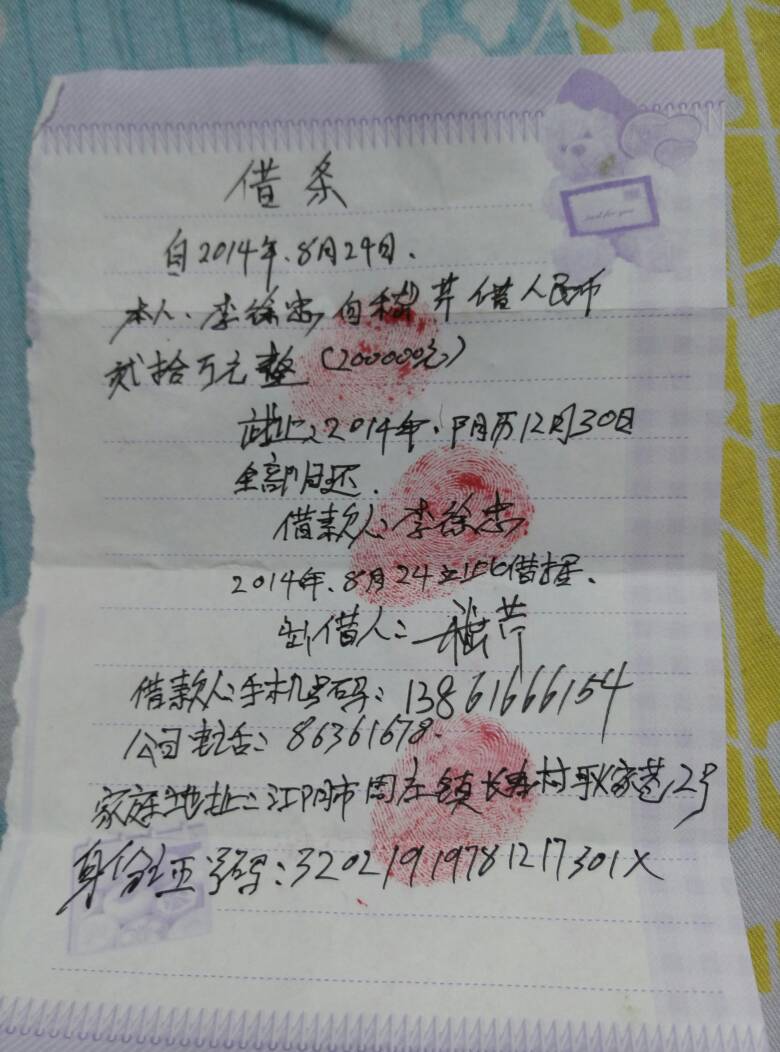 借条
自2014年.8月24日.
本人、李徐忠向 芹借人民币
贰拾万元整(200000元)
2014年.阴历12月30日
全部归还.
借款人:李徐忠
2014年.8月24立此借据.
出借人: 芹
借款人:手机号码:13861666154
公司电话:86361678.
家庭地址:江阴市周庄镇长寿村耿家巷2号
身份证号码:32021919781217301X